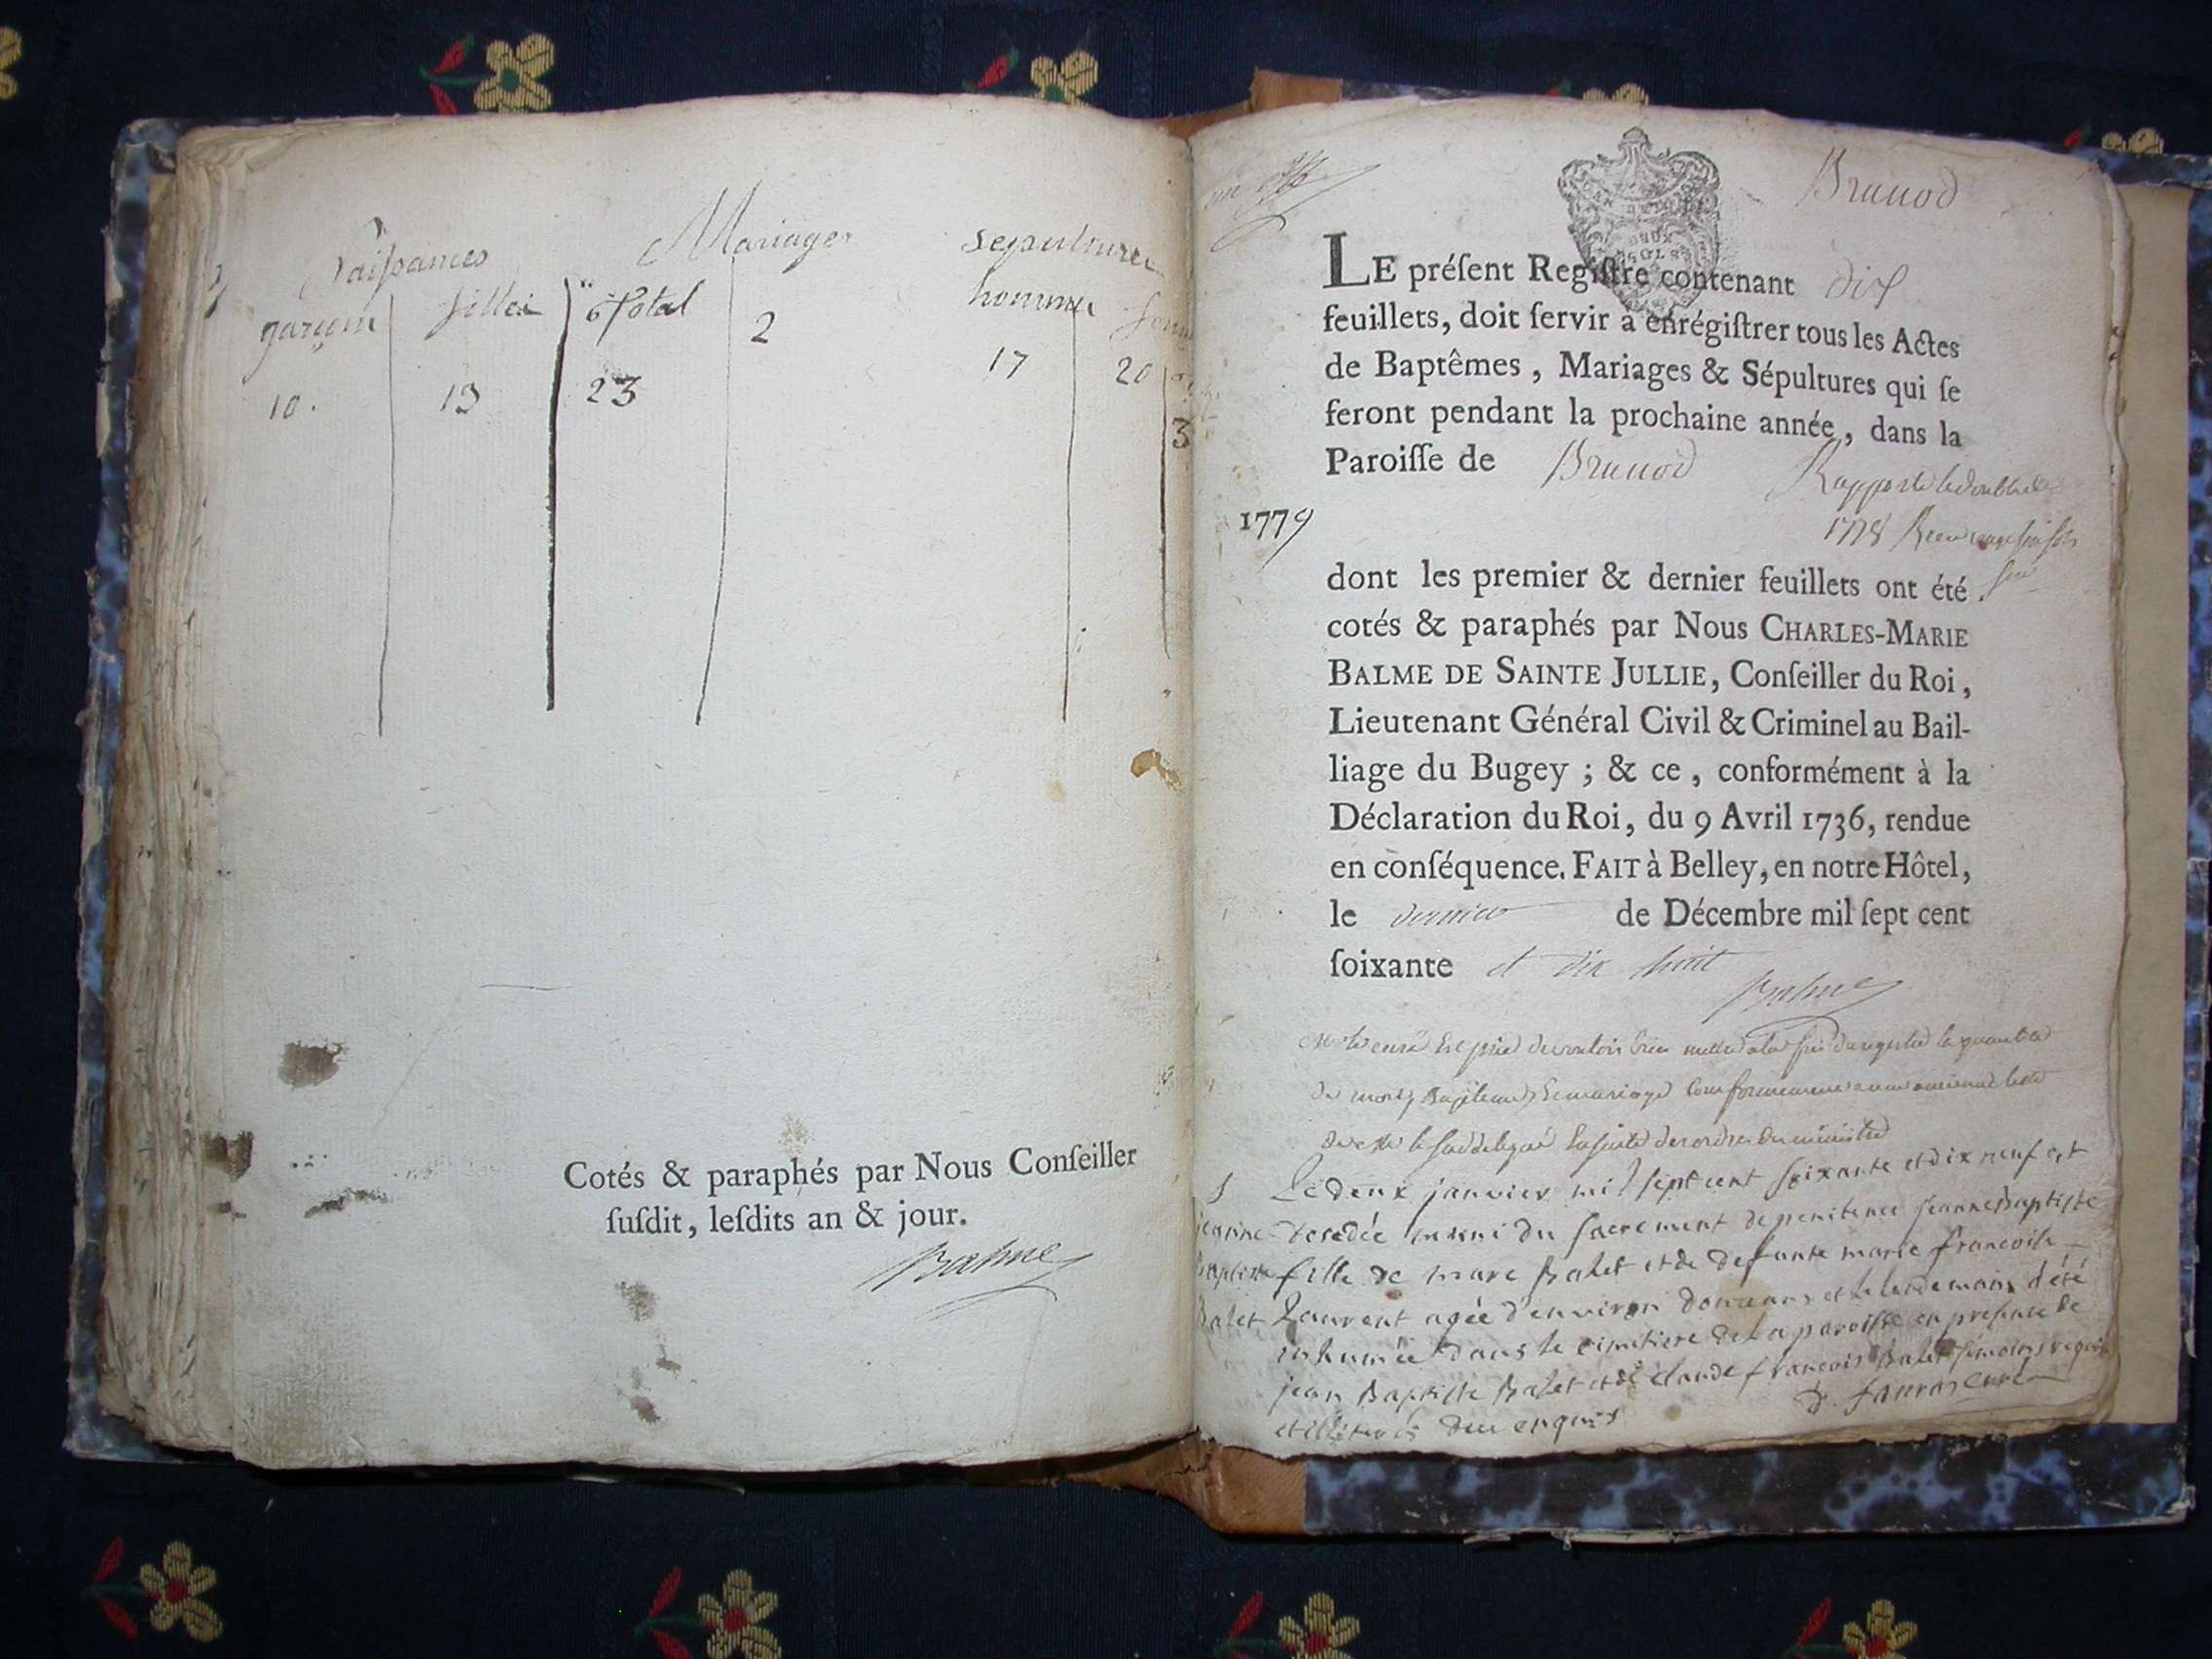 Naissances Mariages sepultures
garçons filles total 2 hommes
10. 13 23 17 20
3
Cotés & paraphés par Nous Conſeiller
ſuſdit, leſdits an & jour.
Balme
Brunod
LE préſent Regiſtre contenant dix
feuillets, doit ſervir à enrégiſtrer tous les Actes
de Baptêmes, Mariages & Sépultures qui ſe
feront pendant la prochaine année, dans la
Paroiſſe de Brunod Rapporté le double de
1779 1778
dont les premier & dernier feuillets ont été
cotés & paraphés par Nous CHARLES-MARIE
BALME DE SAINTE JULLIE, Conſeiller du Roi,
Lieutenant Général Civil & Criminel au Bail-
liage du Bugey ; & ce, conformément à la
Déclaration du Roi, du 9 Avril 1736, rendue
en conſéquence. FAIT à Belley, en notre Hôtel,
le dernier de Décembre mil ſept cent
ſoixante et dix huit
Balme
Mr le curé est prié de vouloir bien mettre a la fin du registre la quantité
de morts, Baptemes, et mariage conformement
de Mr le subdelegué ensuite des ordres du ministre
Le deux janvier mil sept cent soixante et dix neuf est
jeanne decedée muni du sacrement de penitence jeanne Baptiste
Baptiste fille de marc Balet et de defunte marie francoise
Balet Laurent agée d'environ douze ans et le lendemain a été
inhumée dans le cimitiere de la paroisse en presence de
jean Baptiste Balet et de claude francois Balet temoins requis
et illiterés deu enquis